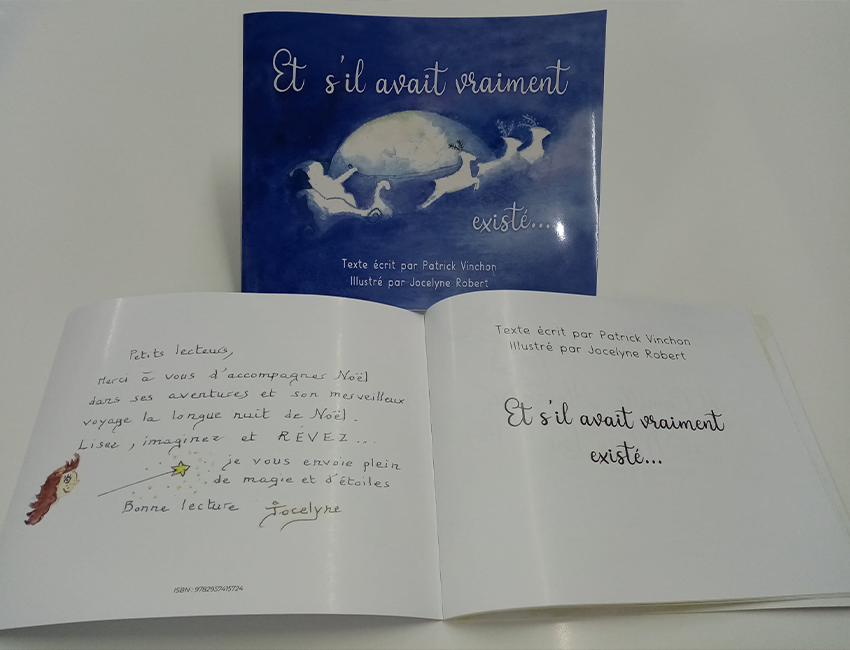 Et s'il avait vraiment
existé...
Texte écrit par Patrick Vinchon
Illustré par Jocelyne Robert
Petits lecteurs,
Merci à vous d'accompagner Noël
dans ses aventures et son merveilleux
voyage la longue nuit de Noël.
Lisez, imaginez et RÊVEZ...
je vous envoie plein
de magie et d'étoiles
Bonne lecture Jocelyne
ISBN : 9782957415724
Texte écrit par Patrick Vinchon
Illustré par Jocelyne Robert
Et s'il avait vraiment
existé...